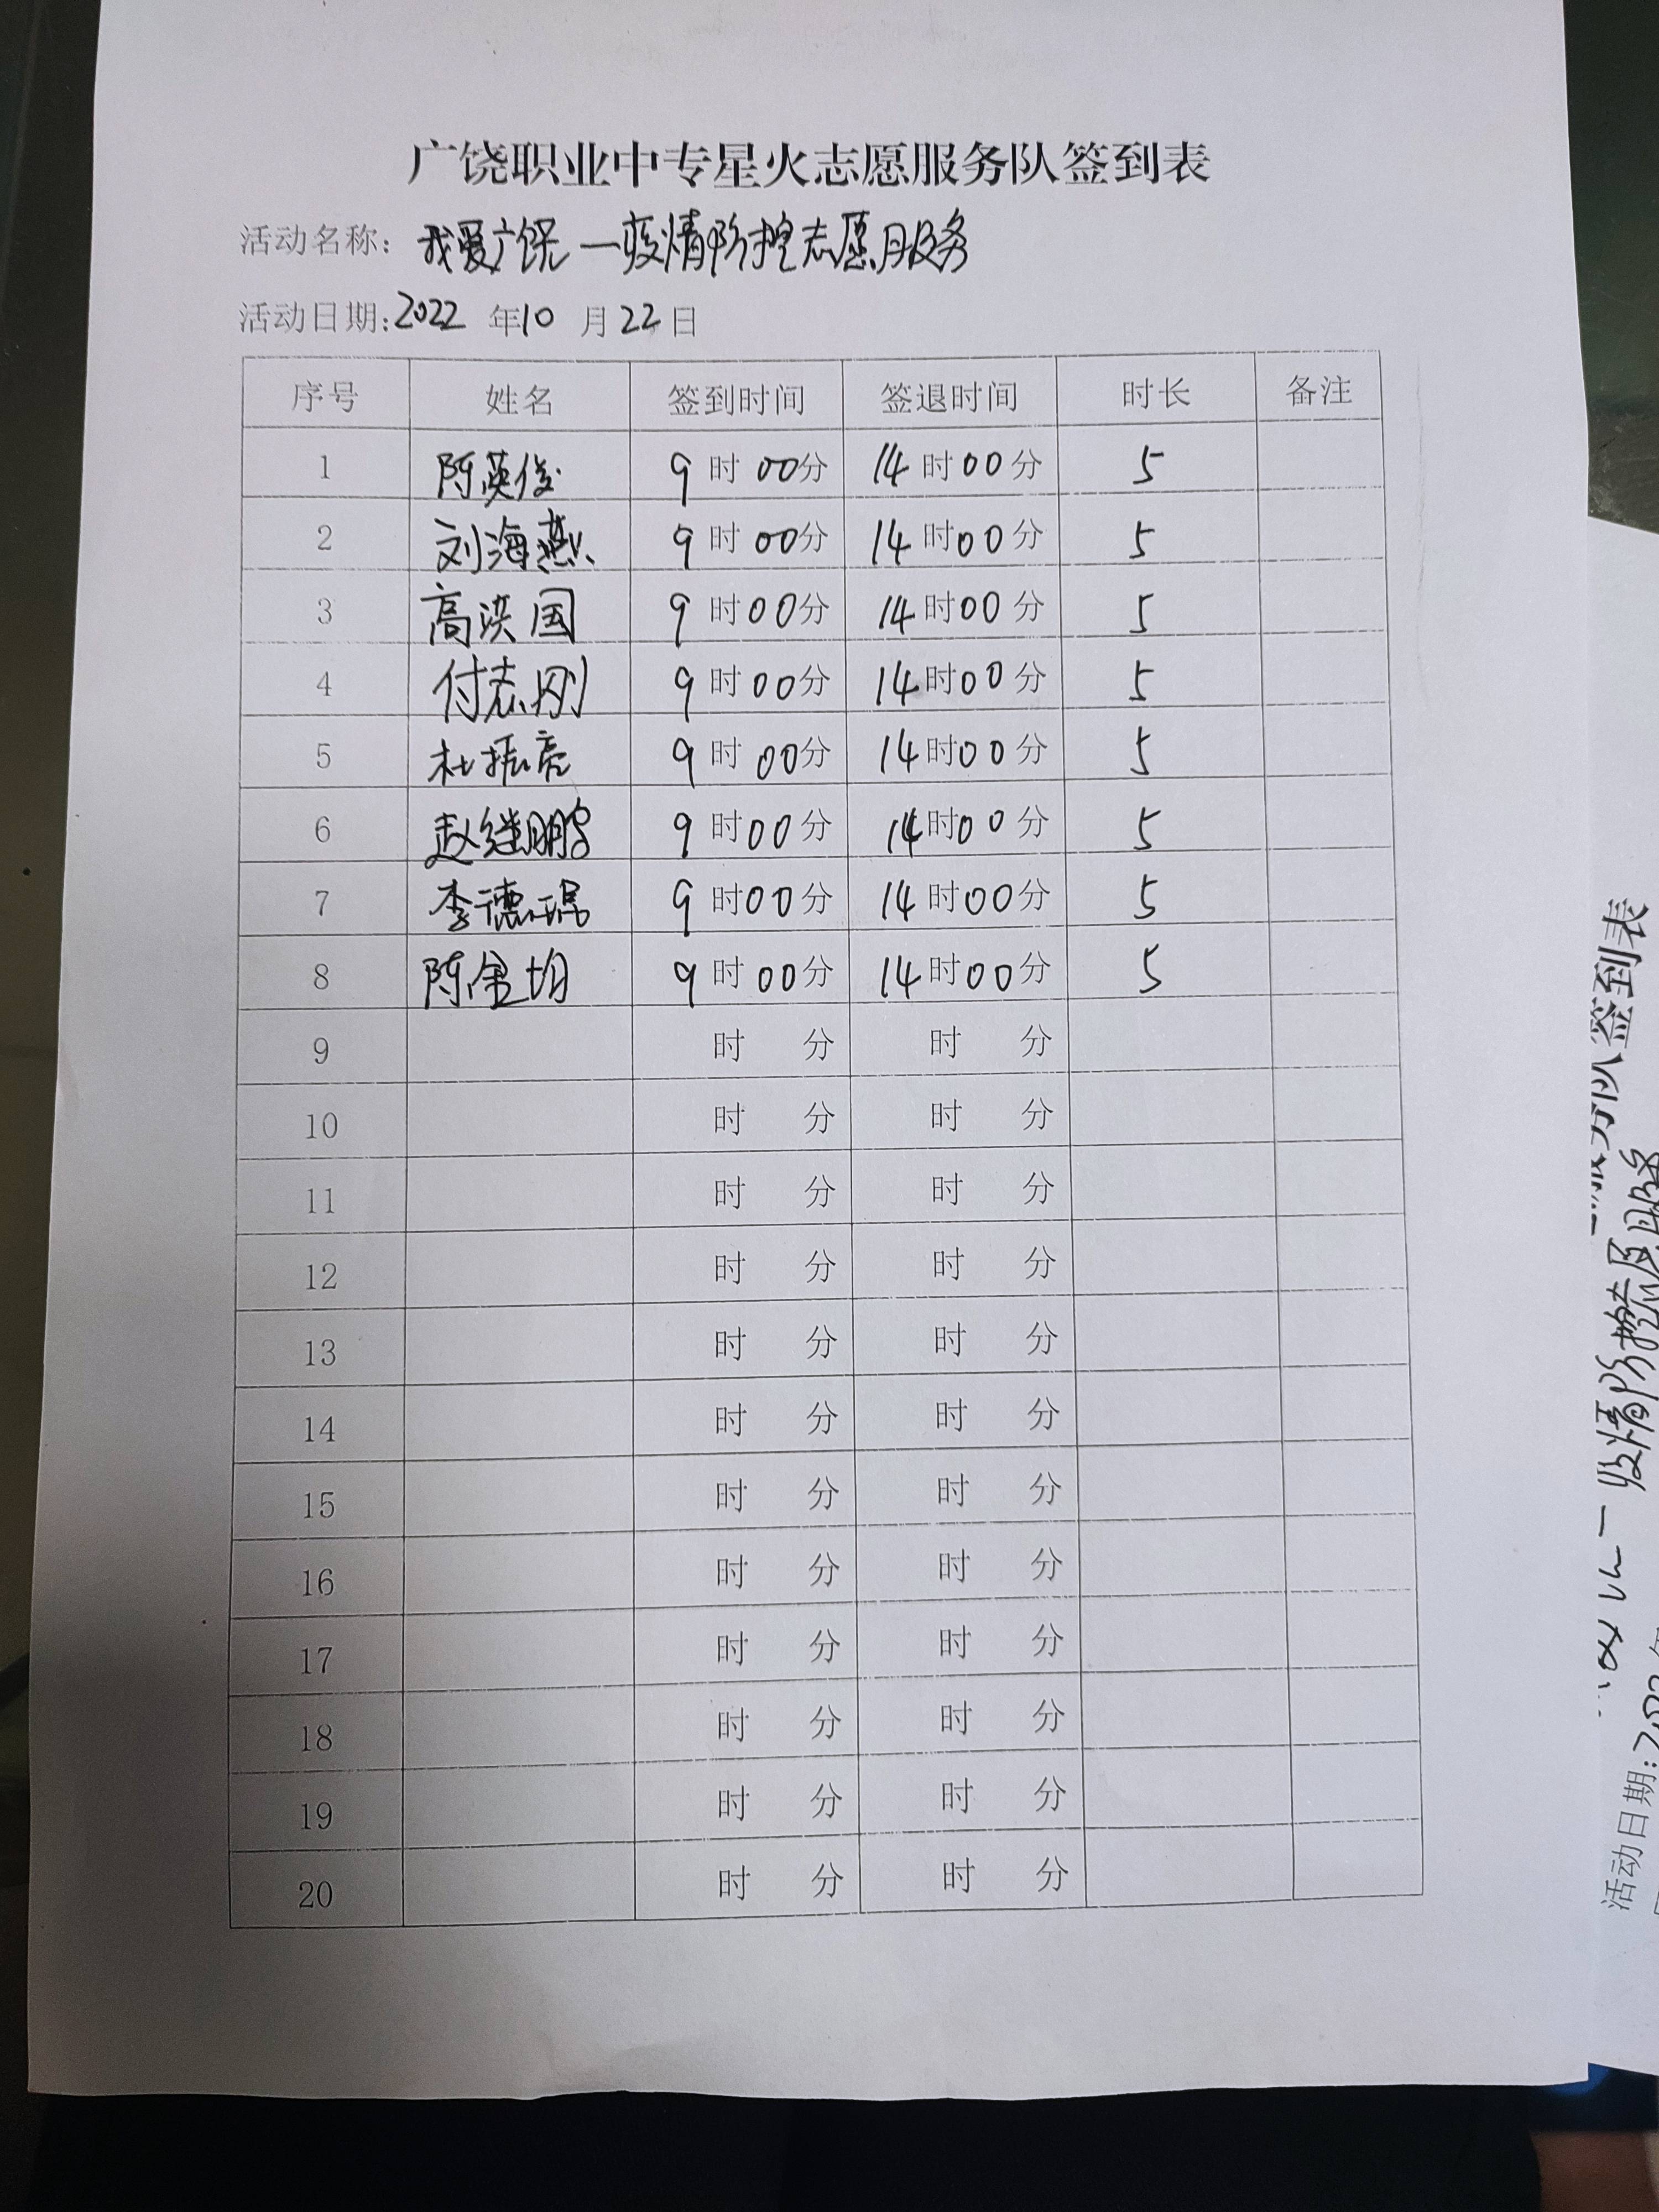 广饶职业中专星火志愿服务队签到表
活动名称: 我爱广饶一疫情防控志愿服务
活动日期:2022 年10 月22日
序号 姓名 签到时间 签退时间 时长 备注
1 陈英俊 9时00分 14时00分 5
2 刘海燕 9时00分 14时00分 5
3 高洪国 9时00分 14时00分 5
4 付志刚 9时00分 14时00分 5
5 杜振亮 9时00分 14时00分 5
6 赵继鹏 9时00分 14时00分 5
7 李德 9时00分 14时00分 5
8 陈金均 9时00分 14时00分 5
9 时 分 时 分
10 时 分 时 分
11 时 分 时 分
12 时 分 时 分
13 时 分 时 分
14 时 分 时 分
15 时 分 时 分
16 时 分 时 分
17 时 分 时 分
18 时 分 时 分
19 时 分 时 分
20 时 分 时 分
签到表
情防控志愿服务
活动日期:202